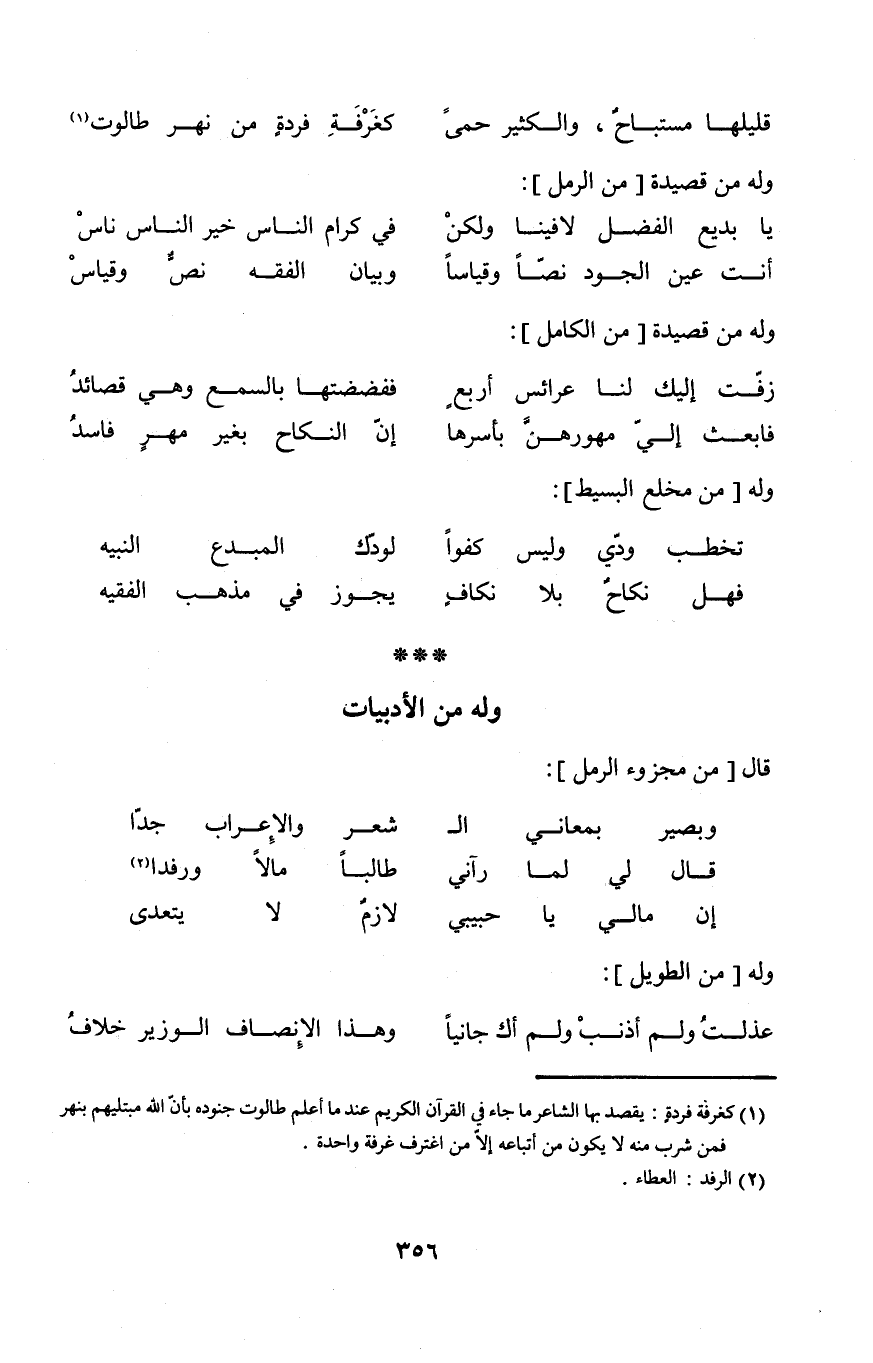 قليلهـا مستبـاحٌ ، والـكثير حمىً كغَرْفَـةِ فردةٍ من نهـر طالوت(١)
وله من قصيدة [ من الرمل ]:
يا بديع الفضـل لافينـا ولكنْ في كرام النـاس خير النـاس ناسْ
أنـت عين الجـود نصّـاً وقياساً وبيان الفقـه نصٌّ وقياسْ
وله من قصيدة [ من الكامل ]:
زفّـت إليك لنـا عرائس أربعٍ ففضضتهـا بالسمـع وهـي قصائدُ
فابعـث إلـيّ مهورهـنَّ بأسرها إنّ النـكاح بغير مهـرٍ فاسدُ
وله [ من مخلع البسيط]:
تخطـب ودّي وليس كفواً لودك المبـدع النبيه
فهـل نكاحٌ بلا نكافٍ يجـوز في مذهـب الفقيه
***
وله من الأدبيات
قال [ من مجزوء الرمل ]:
وبصير بمعانـي الـ شعـر والإعـراب جدّا
قـال لي لمـا رآني طالبـاً مالاً ورفدا(٢)
إن مالـي يا حبيبي لازمٌ لا يتعدى
وله [ من الطويل ]:
عذلـتُ ولـم أذنـبْ ولـم أك جانياً وهـذا الإنصـاف الـوزير خلافُ
(١) كغرفة فردةٍ : يقصد بها الشاعر ما جاء في القرآن الكريم عند ما أعلم طالوت جنوده بأنّ الله مبتليهم بنهر
فمن شرب منه لا يكون من أتباعه إلاّ من اغترف غرفة واحدة .
(٢) الرفد : العطاء .
٣٥٦